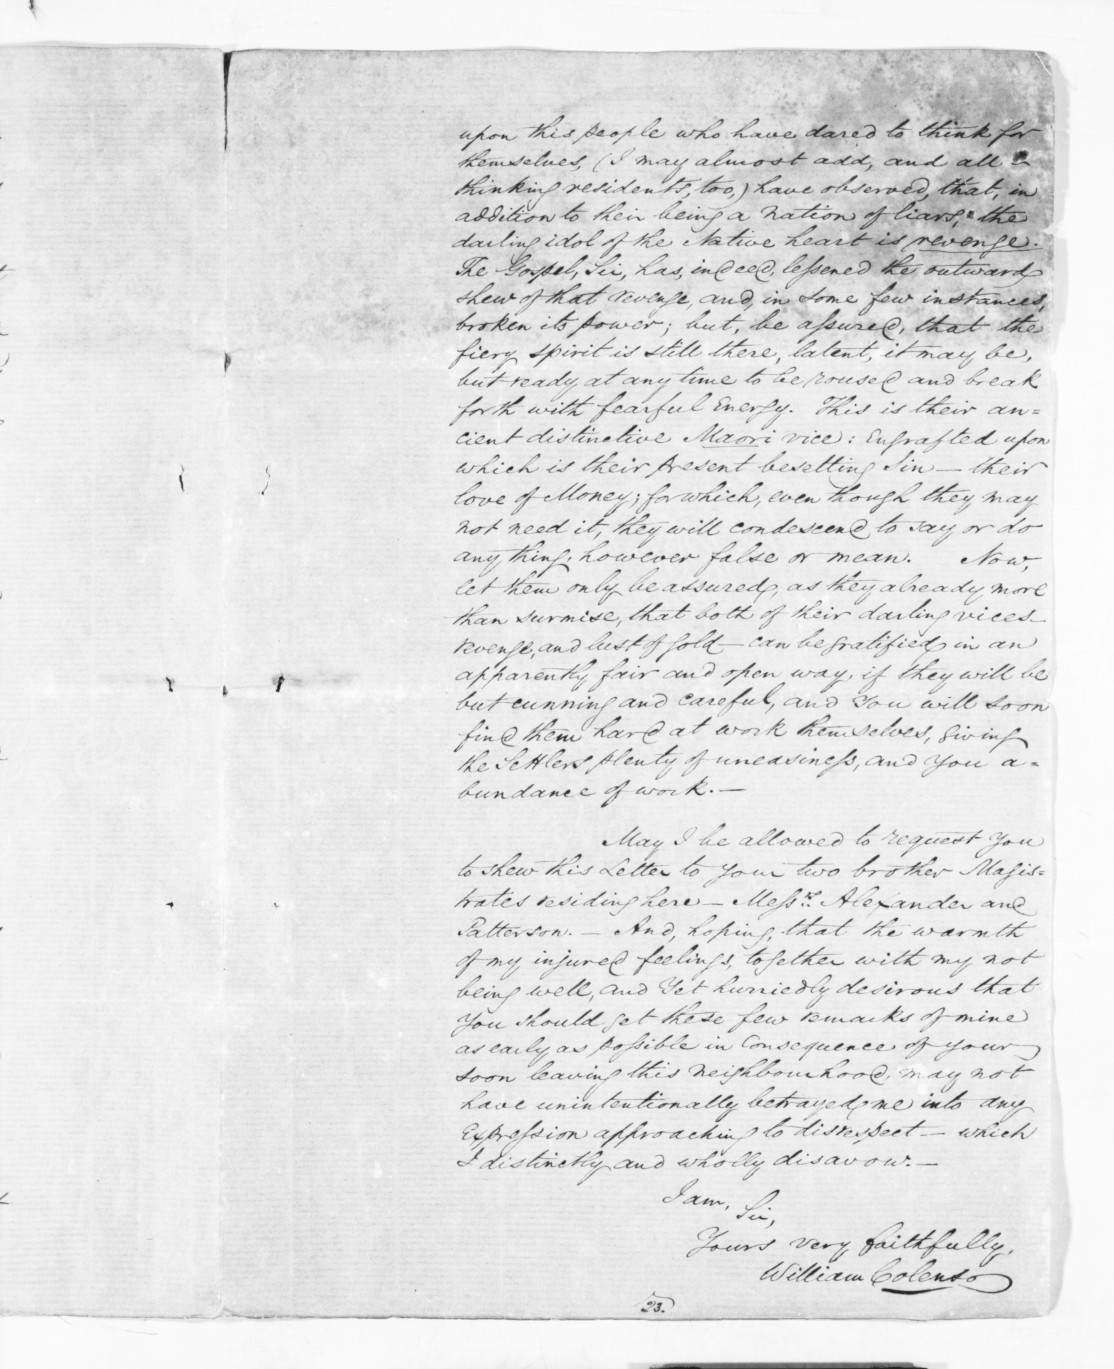 upon this people who have dared to think for
themselves, (I may almost add, and all
thinking residents, too,) have observed, that, in
addition to their being a nation of liars, the
darling idol of the Native heart is revenge.
The Gospel, Sir, has, indeed, lessened the outward
shew of that revenge, and, in some few instances,
broken its power; but, be assured, that the
fiery spirit is still there, latent, it may be,
but ready at any time to be roused and break
forth with fearful Energy. This is their an=
cient distinctive Maori vice: Engrafted upon
which is their present besetting Sin — their
love of Money; for which, even though they may
not need it, they will condescend to say or do
any thing, however false or mean. Now,
let them only be assured, as they already more
than surmise, that both of their darling vices—
revenge, and lust of gold — can be gratified in an
apparently fair and open way, if they will be
but cunning and careful, and You will soon
find them hard at work themselves, giving
the Settlers plenty of uneasiness, and You a=
bundance of work. —
May I be allowed to request You
to shew this Letter to Your two brother Magis=
trates residing here — Messrs. Alexander and
Patterson. — And, hoping, that the warmth
of my injured feelings, together with my not
being well, and Yet hurriedly desirous that
You should get these few remarks of mine
as early as possible in Consequence of Your
soon leaving this neighbourhood, may not
have unintentionally betrayed me into any
Expression approaching to disrespect — which
I distinctly and wholly disavow. —
I am,
Sir,
Yours very faithfully,
William Colenso
23.